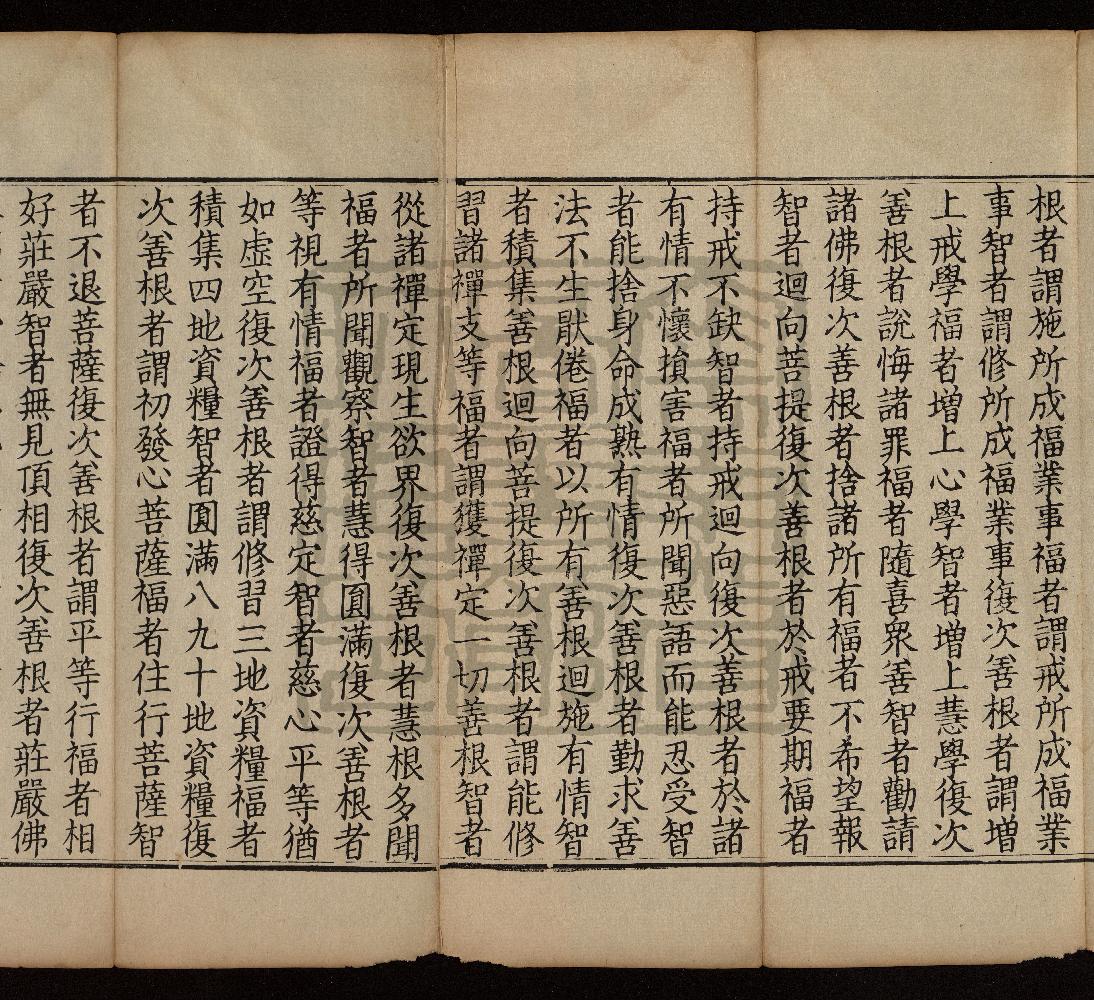 根者謂施所成福業事福者謂戒所成福業
事智者謂修所成福業事復次善根者謂增
上戒學福者增上心學智者增上慧學復次
善根者說悔諸罪福者隨喜衆善智者勸請
諸佛復次善根者捨諸所有福者不希望報
智者迴向菩提復次善根者於戒要期福者
持戒不缺智者持戒迴向復次善根者於諸
有情不懷損害福者所聞惡語而能忍受智
者能捨身命成熟有情復次善根者勤求善
法不生猒倦福者以所有善根迴施有情智
者積集善根迴向菩提復次善根者謂能修
習諸禪支等福者謂獲禪定一切善根智者
從諸禪定現生欲界復次善根者慧根多聞
福者所聞觀察智者慧得圓滿復次善根者
等視有情福者證得慈定智者慈心平等猶
如虛空復次善根者謂修習三地資糧福者
積集四地資糧智者圓滿八九十地資糧復
次善根者謂初發心菩薩福者住行菩薩智
者不退菩薩復次善根者謂平等行福者相
好莊嚴智者無見頂相復次善根者莊嚴佛